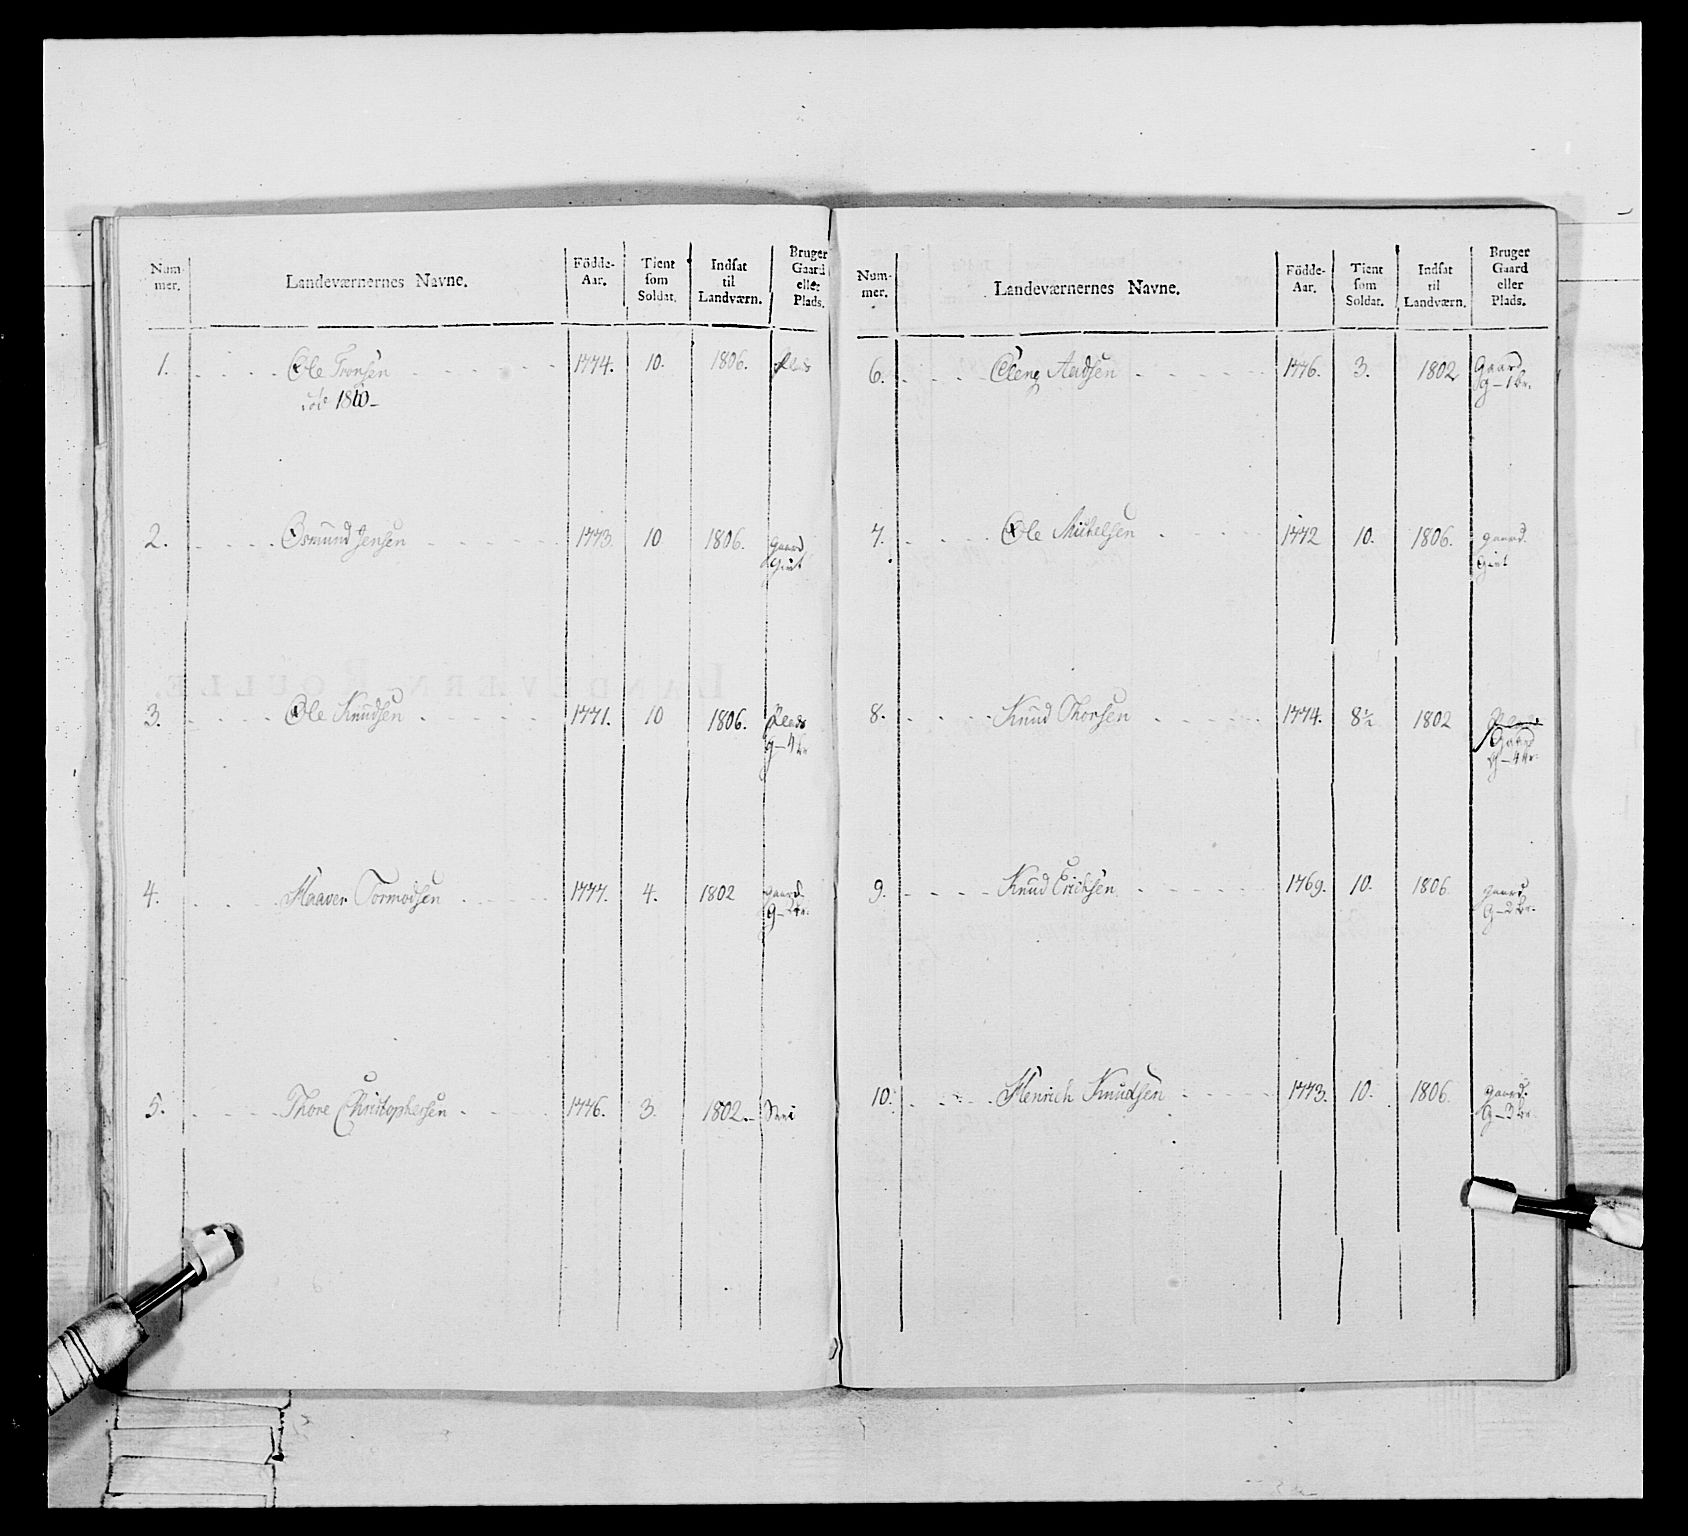 Num- mer. Landeværnernes Navne. Födde- Aar. Tient som Soldat. Indsat til Landværn. Bruger Gaard eller Plads.
1. Ole Tronsen 1774. 10. 1806. Plads
död 1810-
2. Osmund Jensen 1773. 10 1806. gaard
Givt
3. Ole Knudsen 1771. 10 1806. Plads
g-4br
4. Haaver Tormodsen 1777. 4. 1802 gaard.
G-2br.
5. Thore Christophersen 1776. 3. 1802.-
Num- mer. Landeværnernes Navne. Födde- Aar. Tient som Soldat. Indsat til Landværn. Bruger Gaard eller Plads.
6. Cleng Aadsen 1776. 3. 1802 Gaard
g-1br.
7. Ole Michelsen 1772 10. 1806. gaard.
Givt
8. Knud Thorsen 1774. 8½ 1802 Plads
Gaard
G-4br.
9. Knud Erichsen 1769. 10. 1806. gaard
G-2br.
10. Henrich Knudsen 1773. 10. 1806. gaard.
G-3br.
LANDEVÆRN ROULLE.